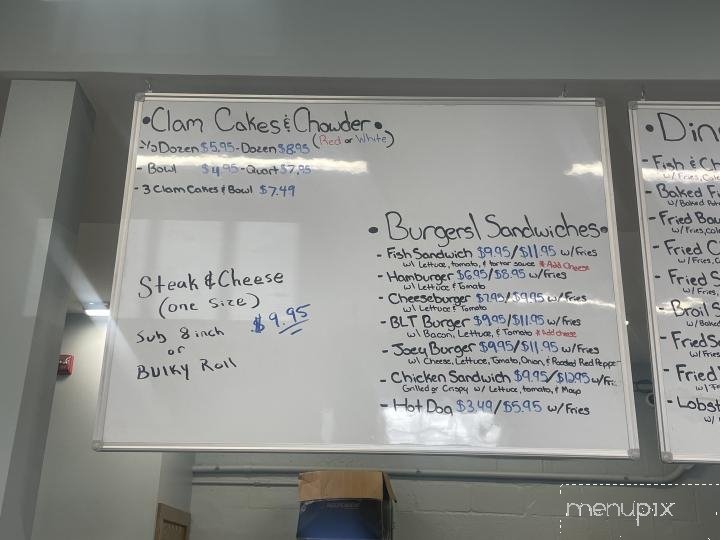 •Clam Cakes & Chowder•
(Red or White)
-½ Dozen $5.95-Dozen $8.95
- Bowl $4.95-Quart $7.95
-3 Clam Cakes & Bowl $7.49
Steak & Cheese
(one size)
Sub 8 inch
or
Bulky Roll
$9.95
• Burgers| Sandwiches•
- Fish Sandwich $9.95/$11.95 w/Fries
w/ Lettuce, tomato, & tarter sauce * Add Cheese
-Hamburger $6.95/$8.95 w/Fries
w/ Lettuce & Tomato
-Cheeseburger $7.95/$9.95 w/Fries
w/ Lettuce & Tomato
-BLT Burger $9.95/$11.95 w/Fries
w/ Bacon, Lettuce, & Tomato *Add cheese
-Joey Burger $9.95/$11.95 w/Fries
w/ Cheese, Lettuce, Tomato, Onion, & Roasted Red Peppe
- Chicken Sandwich $9.95/$12.95 w/Fri
Grilled or Crispy w/ Lettuce, tomato, & Mayo
-Hot Dog $3.49/$5.95 w/Fries
•Din
-Fish & Ch
w/Fries, Cole
-Baked Fi
w/Baked Pot
-Fried Bo
w/Fries, Col
-Fried C
w/Fries,
-Fried S
w/Fries,
-Broil S
w/Baked
-Fried S
w/Fries
-Fried
w/F
-Lobst
w/
menupix